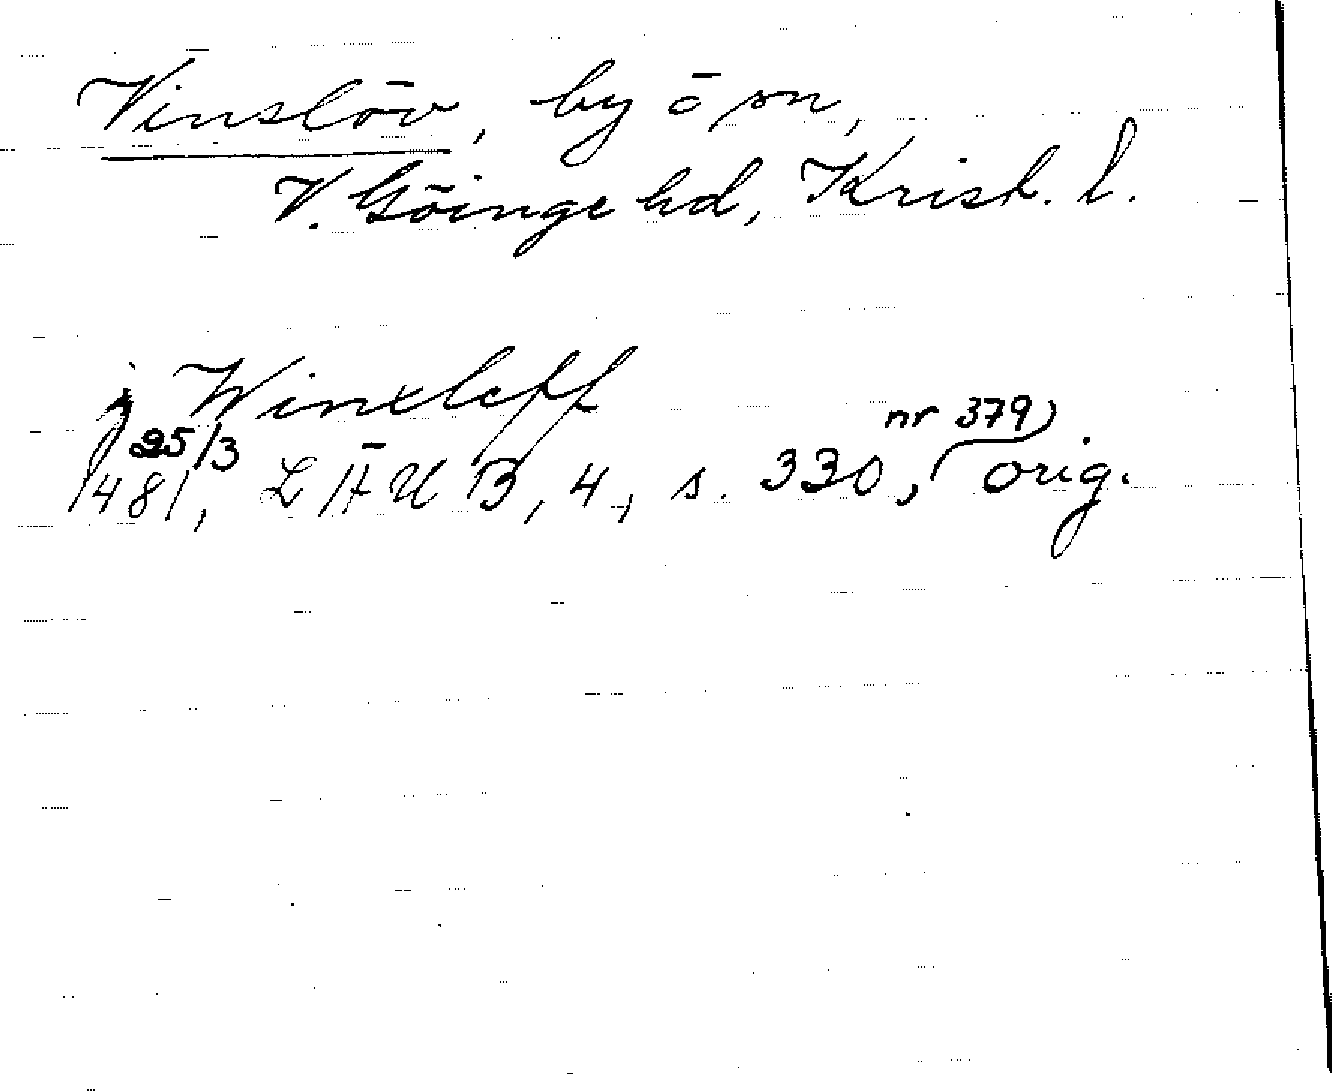 Vinslöv, by ö sn,
V. Göinge hd, Krist. l.
j Winxleff
25/3 nr 379)
1481, LÄUB, 4, s. 330, orig.